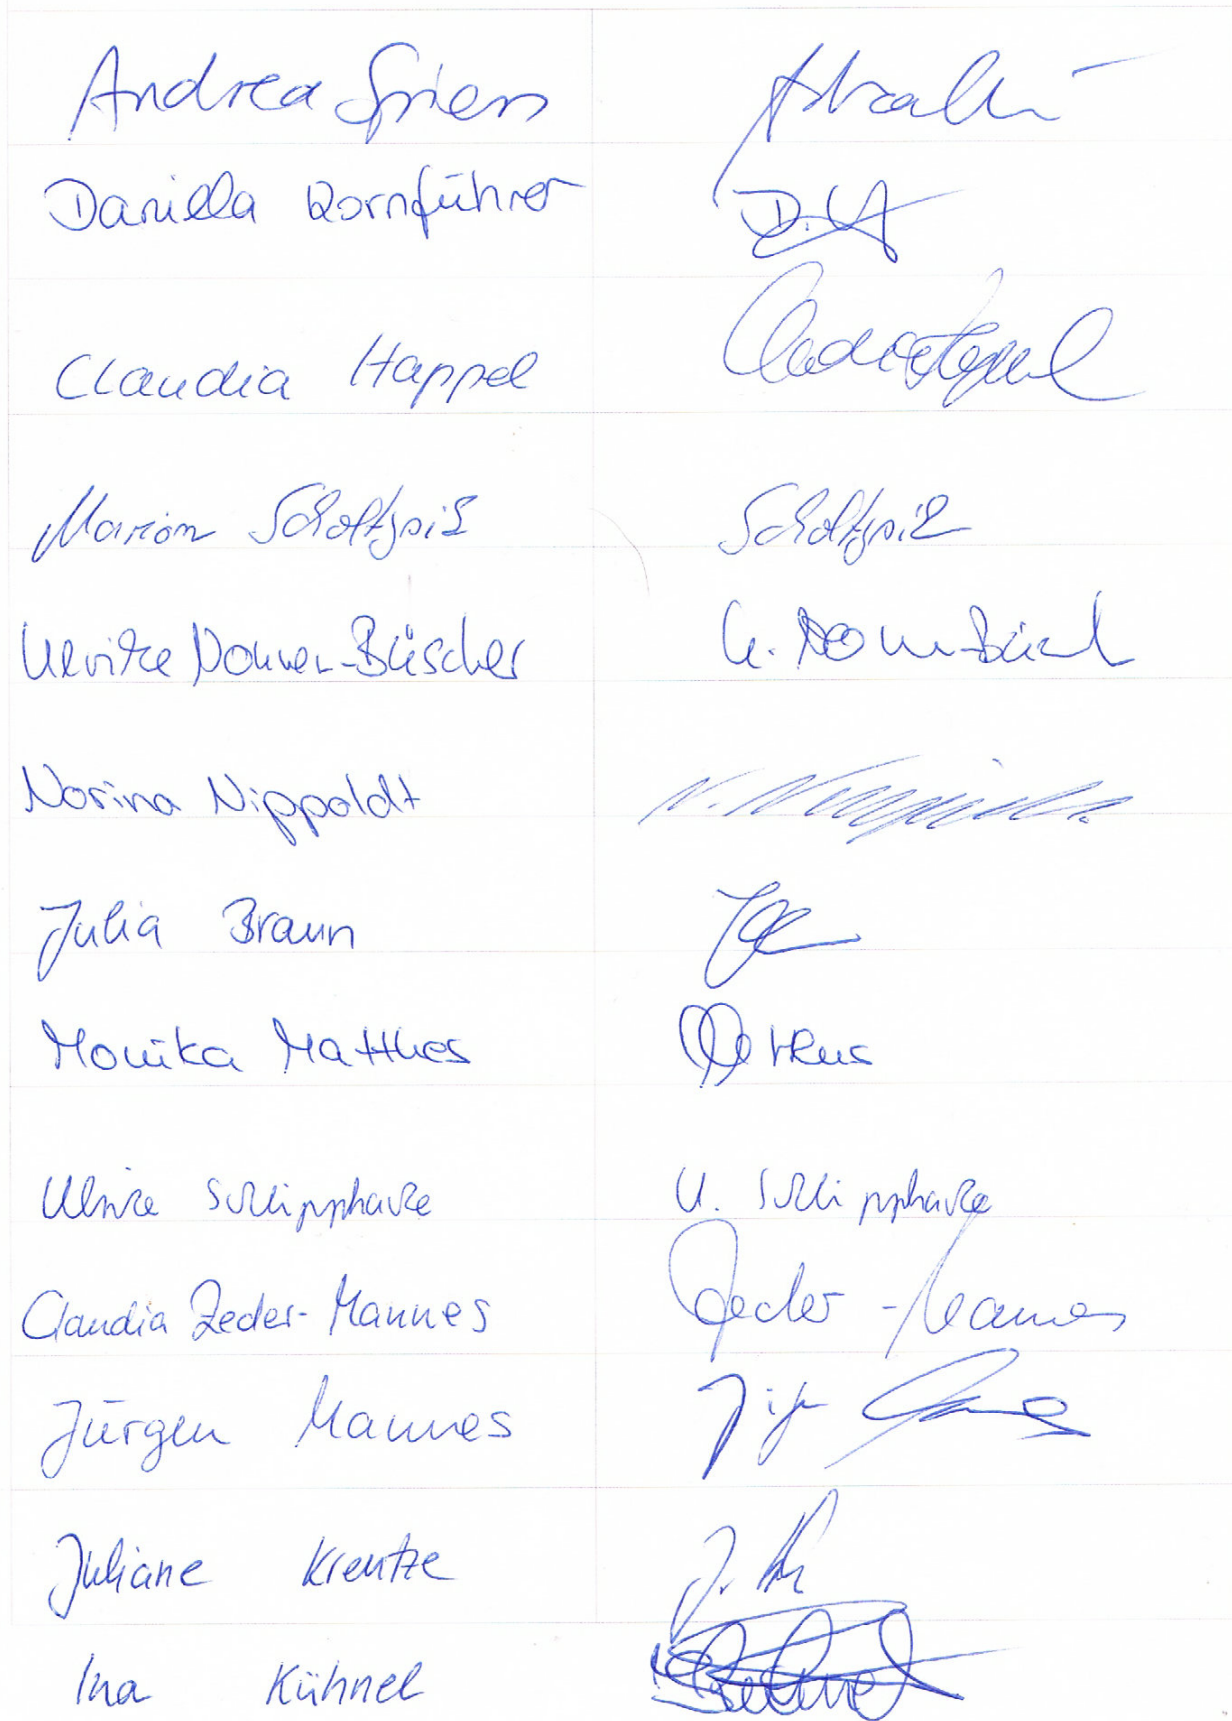 Andrea
Daniela Kornführer
Claudia Happel Claudia Happel
Marion Scholtysik Scholtysik
Ulrike Donner-Büscher U.
Norina Nippoldt N.
Julia Braun
Monika Matthes
Ulrike Schlipphacke U. Schlipphacke
Claudia Zeder-Mannes Zeder-Mannes
Jürgen Mannes
Juliane Kreutze J.
Ina Kühnel